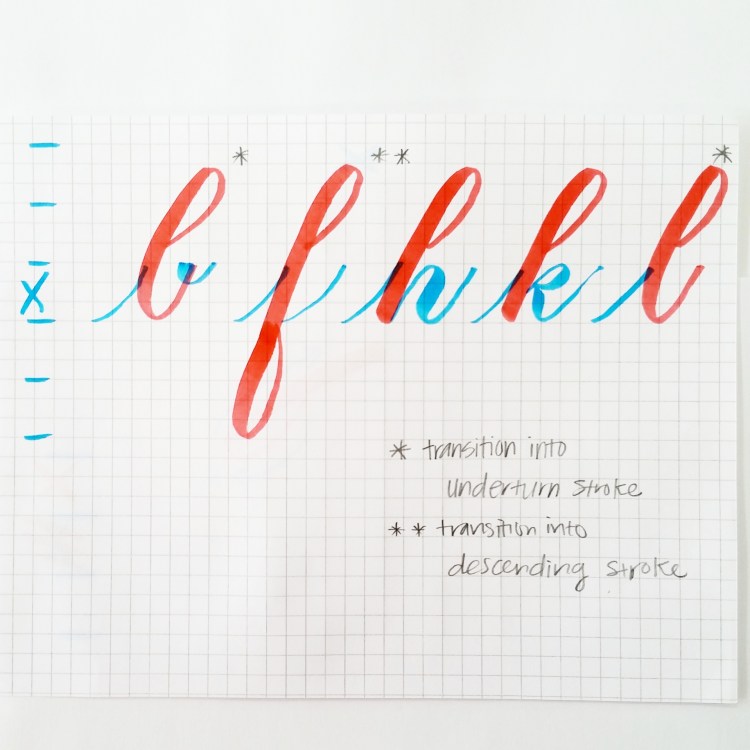 * **  *
b f h k l
X
* transition into
underturn stroke
** transition into
descending stroke